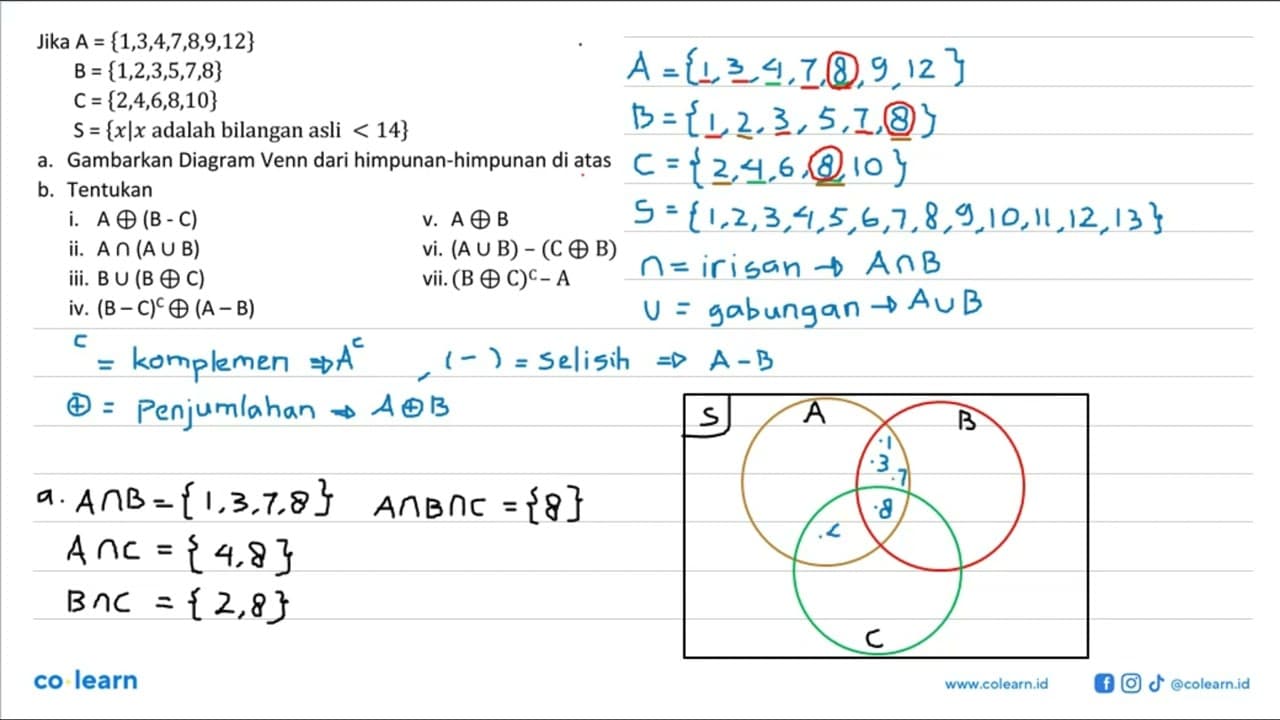 Jika A = {1,3,4,7,8,9,12}
B = {1,2,3,5,7,8}
C = {2,4,6,8,10}
S = {x|x adalah bilangan asli < 14}
a. Gambarkan Diagram Venn dari himpunan-himpunan di atas
b. Tentukan
i. A ⊕ (B - C)
v. A ⊕ B
ii. A ∩ (A ∪ B)
vi. (A ∪ B) – (C ⊕ B)
iii. B ∪ (B ⊕ C)
vii. (B ⊕ C)ᶜ – A
iv. (B – C)ᶜ ⊕ (A – B)
A = {1,3,4,7,8,9,12}
B = {1,2,3,5,7,8}
C = {2,4,6,8,10}
S = {1,2,3,4,5,6,7,8,9,10,11,12,13}
∩ = irisan → A∩B
∪ = gabungan → A∪B
c = komplemen ⇒ Aᶜ , (-) = selisih ⇒ A-B
⊕ = Penjumlahan → A⊕B
a. A∩B = {1,3,7,8} A∩B∩C = {8}
A∩C = {4,8}
B∩C = {2,8}
S
A
B
.1
.3
.7
.8
C
co learn
www.colearn.id
@colearn.id